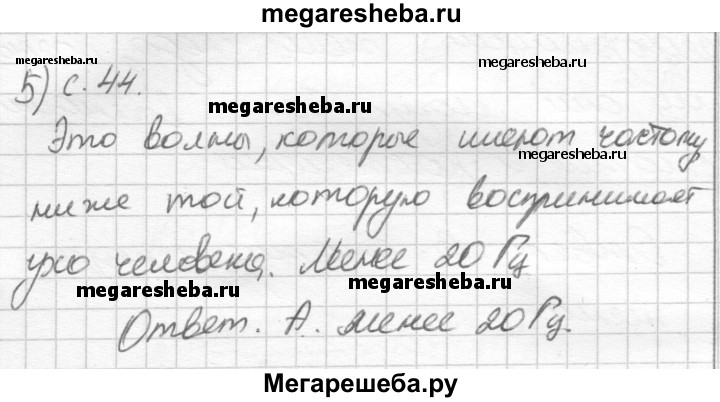 megaresheba.ru
5) с. 44.
megaresheba.ru
megaresheba.ru
Это волны, которые имеют частоту
megaresheba.ru
ниже той, которую воспринимает
ухо человека. Менее 20 Гц
megaresheba.ru
megaresheba.ru
Ответ. А. менее 20 Гц.
Мегарешеба.ру